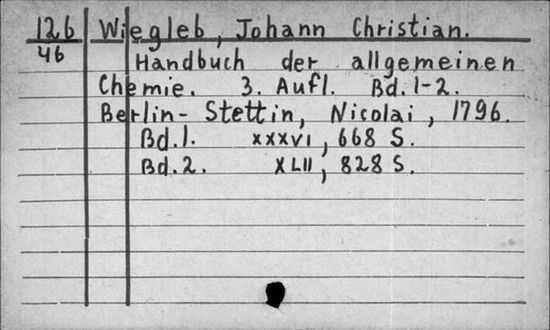 126 Wiegleb, Johann Christian.
46
Handbuch der allgemeinen
Chemie. 3. Aufl. Bd. 1-2.
Berlin-Stettin, Nicolai, 1796.
Bd. 1. XXXVI, 668 S.
Bd. 2. XLII, 828 S.